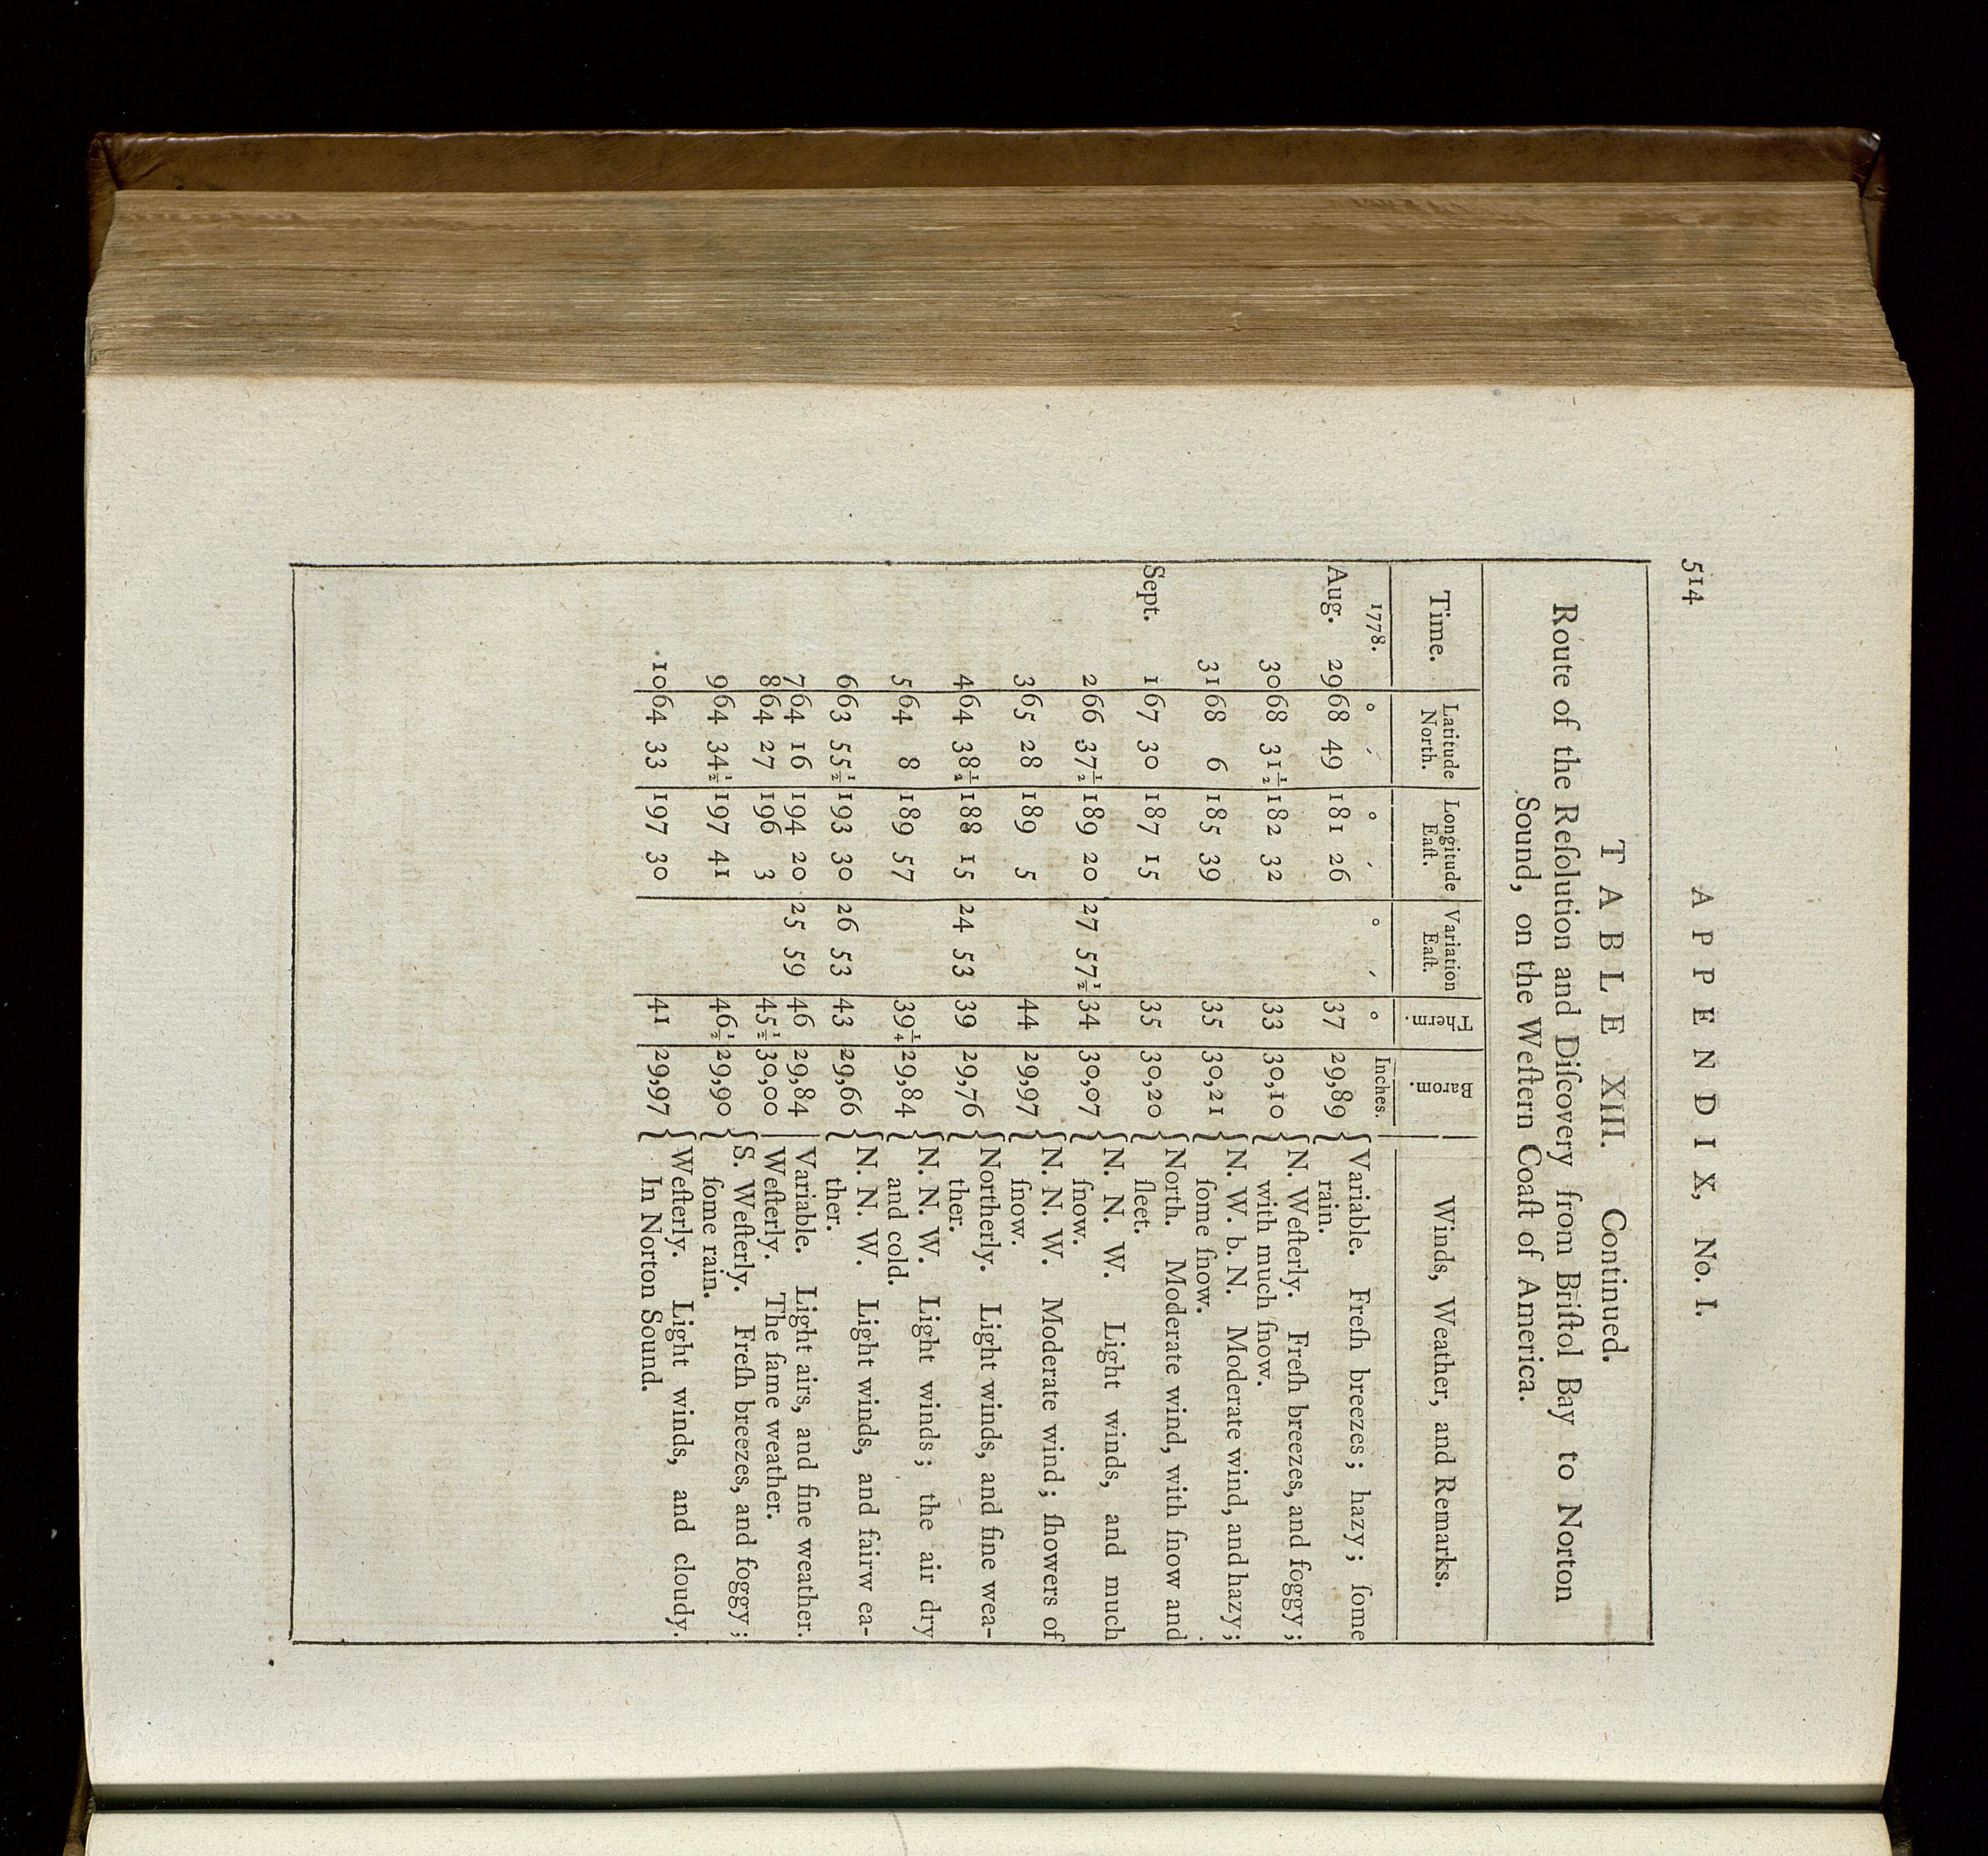 514 APPENDIX, No. I.
TABLE XIII. Continued.
Route of the Reſolution and Diſcovery from Briſtol Bay to Norton
Sound, on the Weſtern Coaſt of America.
Time. Latitude North. Longitude Eaſt. Variation Eaſt. Therm. Barom. Winds, Weather, and Remarks.
1778. ° ′ ° ′ ° ′ ° Inches.
Aug. 29 68 49 181 26 37 29,89 { Variable. Freſh breezes; hazy; ſome
rain.
30 68 31½ 182 32 33 30,10 { N. Weſterly. Freſh breezes, and foggy;
with much ſnow.
31 68 6 185 39 35 30,21 { N. W. b. N. Moderate wind, and hazy;
ſome ſnow.
Sept. 1 67 30 187 15 35 30,20 { North. Moderate wind, with ſnow and
ſleet.
2 66 37½ 189 20 27 57½ 34 30,07 { N. N. W. Light winds, and much
ſnow.
3 65 28 189 5 44 29,97 { N. N. W. Moderate wind; ſhowers of
ſnow.
4 64 38½ 188 15 24 53 39 29,76 { Northerly. Light winds, and fine wea-
ther.
5 64 8 189 57 39¼ 29,84 { N. N. W. Light winds; the air dry
and cold.
6 63 55½ 193 30 26 53 43 29,66 { N. N. W. Light winds, and fairw ea-
ther.
7 64 16 194 20 25 59 46 29,84 Variable. Light airs, and fine weather.
8 64 27 196 3 45½ 30,00 Weſterly. The ſame weather.
9 64 34½ 197 41 46½ 29,90 { S. Weſterly. Freſh breezes, and foggy;
ſome rain.
10 64 33 197 30 41 29,97 { Weſterly. Light winds, and cloudy.
In Norton Sound.